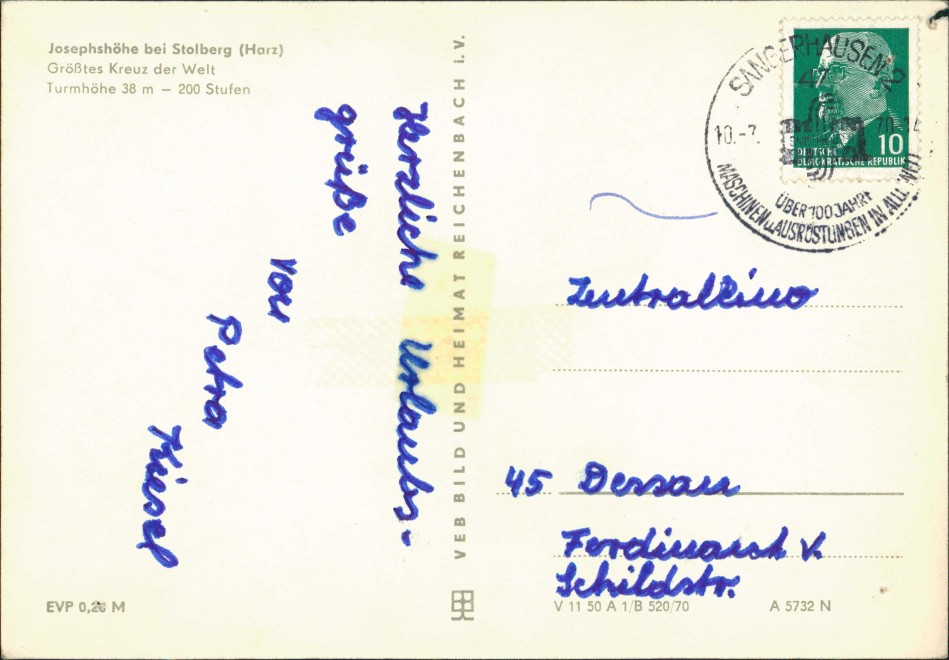 Josephshöhe bei Stolberg (Harz)
Größtes Kreuz der Welt
Turmhöhe 38 m – 200 Stufen
Herzliche Urlaubs-
grüße
von
Petra
Kiesel
EVP 0,20 M
VEB BILD UND HEIMAT REICHENBACH i. V.
SANGERHAUSEN 2
10.-7.
ÜBER 100 JAHRE
MASCHINEN u. AUSRÜSTUNGEN IN ALLE WELT
10
DEUTSCHE
DEMOKRATISCHE REPUBLIK
Zentralkino
45 Dessau
Ferdinand v.
Schildstr.
V 11 50 A 1/B 520/70
A 5732 N